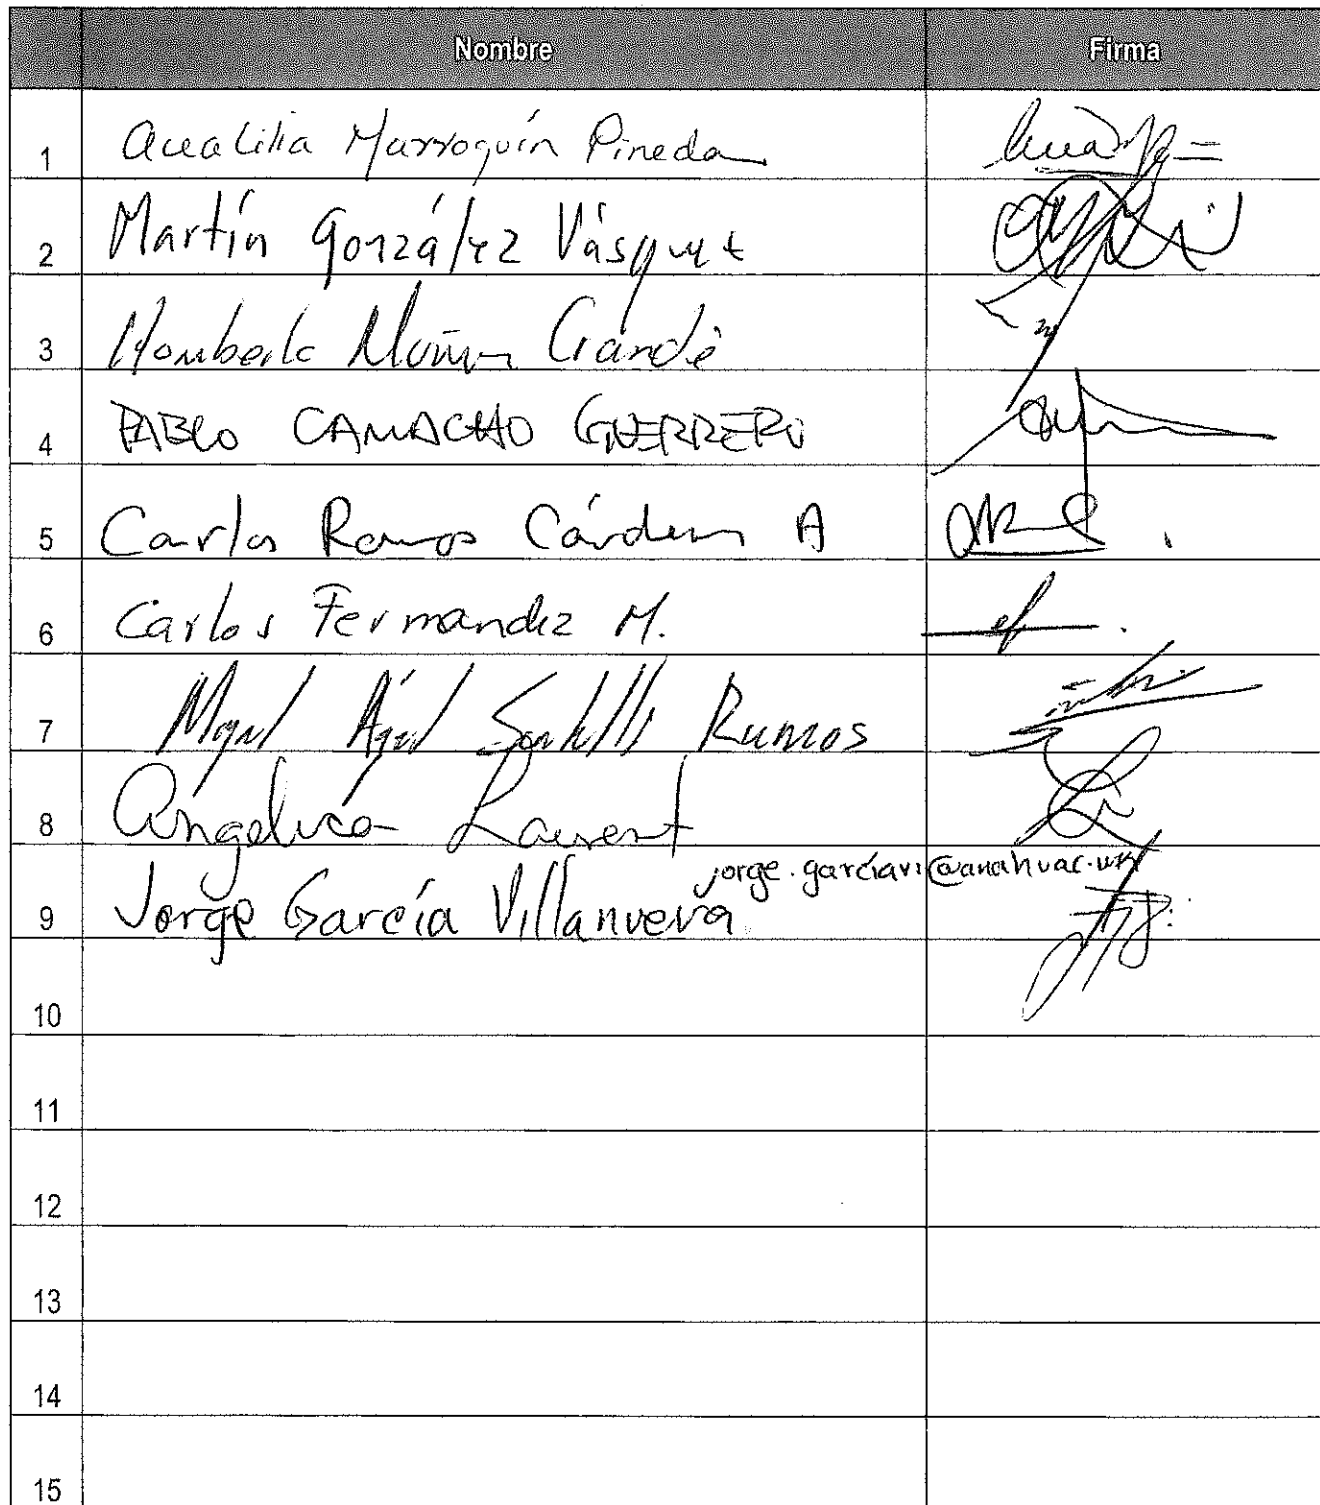 Nombre Firma
1 Ana Lilia Marroquín Pineda
2 Martín González Vásquez
3 Humberto Muñoz Grandé
4 PABLO CAMACHO GUERRERO
5 Carlos Ramos Cárdenas A
6 Carlos Fernandez M.
7 Miguel Ángel Santill Ramos
8 Angélica Laurent
jorge.garciavi@anahuac.mx
9 Jorge García Villanueva
10
11
12
13
14
15